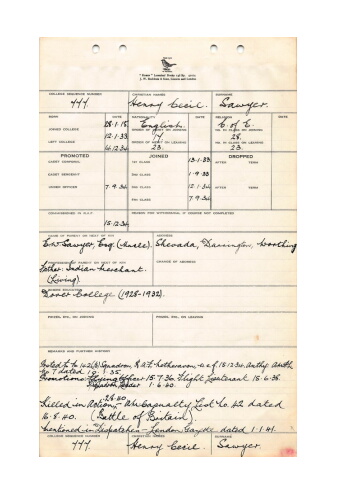 COLLEGE SEQUENCE NUMBER CHRISTIAN NAMES SURNAME
777. Henry Cecil. Sawyer.
BORN DATE NATIONALITY RELIGION
28.1.15 English. C. of E.
JOINED COLLEGE ORDER OF MERIT ON JOINING No. IN CLASS ON JOINING
12.1.33 17 28.
LEFT COLLEGE ORDER OF MERIT ON LEAVING No. IN CLASS ON LEAVING
15.12.34 23. 23.
PROMOTED DATE JOINED DATE DROPPED
CADET CORPORAL 1ST CLASS 13.1.33 AFTER TERM
CADET SERGEANT 2ND CLASS 1.9.33 AFTER TERM
UNDER OFFICER 7.9.34 3RD CLASS 12.1.34 AFTER TERM
7.9.34
COMMISSIONED IN R.A.F. REASON FOR WITHDRAWAL IF COURSE NOT COMPLETED
15.12.34
NAME OF PARENT OR NEXT OF KIN ADDRESS
E.W. Sawyer, Esq. (Uncle). Worthing
PROFESSION OF PARENT OR NEXT OF KIN CHANGE OF ADDRESS
Father: Indian Merchant.
(Living).
WHERE EDUCATED
Dover College (1928-1932).
PRIZES, ETC., ON JOINING PRIZES, ETC., ON LEAVING
REMARKS AND FURTHER HISTORY
Posted to No 142(B) Squadron, R.A.F. w.e.f 15.12.34
No 7 dated 10.1.35.
Promotions: Flying Officer 15.7.36. Flight Lieutenant 15.6.38.
Squadron Leader 1.6.40.
Killed in Action, Air Casualty List No. 42 dated
16.8.40. (Battle of Britain)
Mentioned in Despatches – London Gazette dated 1.1.41.
COLLEGE SEQUENCE NUMBER CHRISTIAN NAMES SURNAME
777. Henry Cecil Sawyer